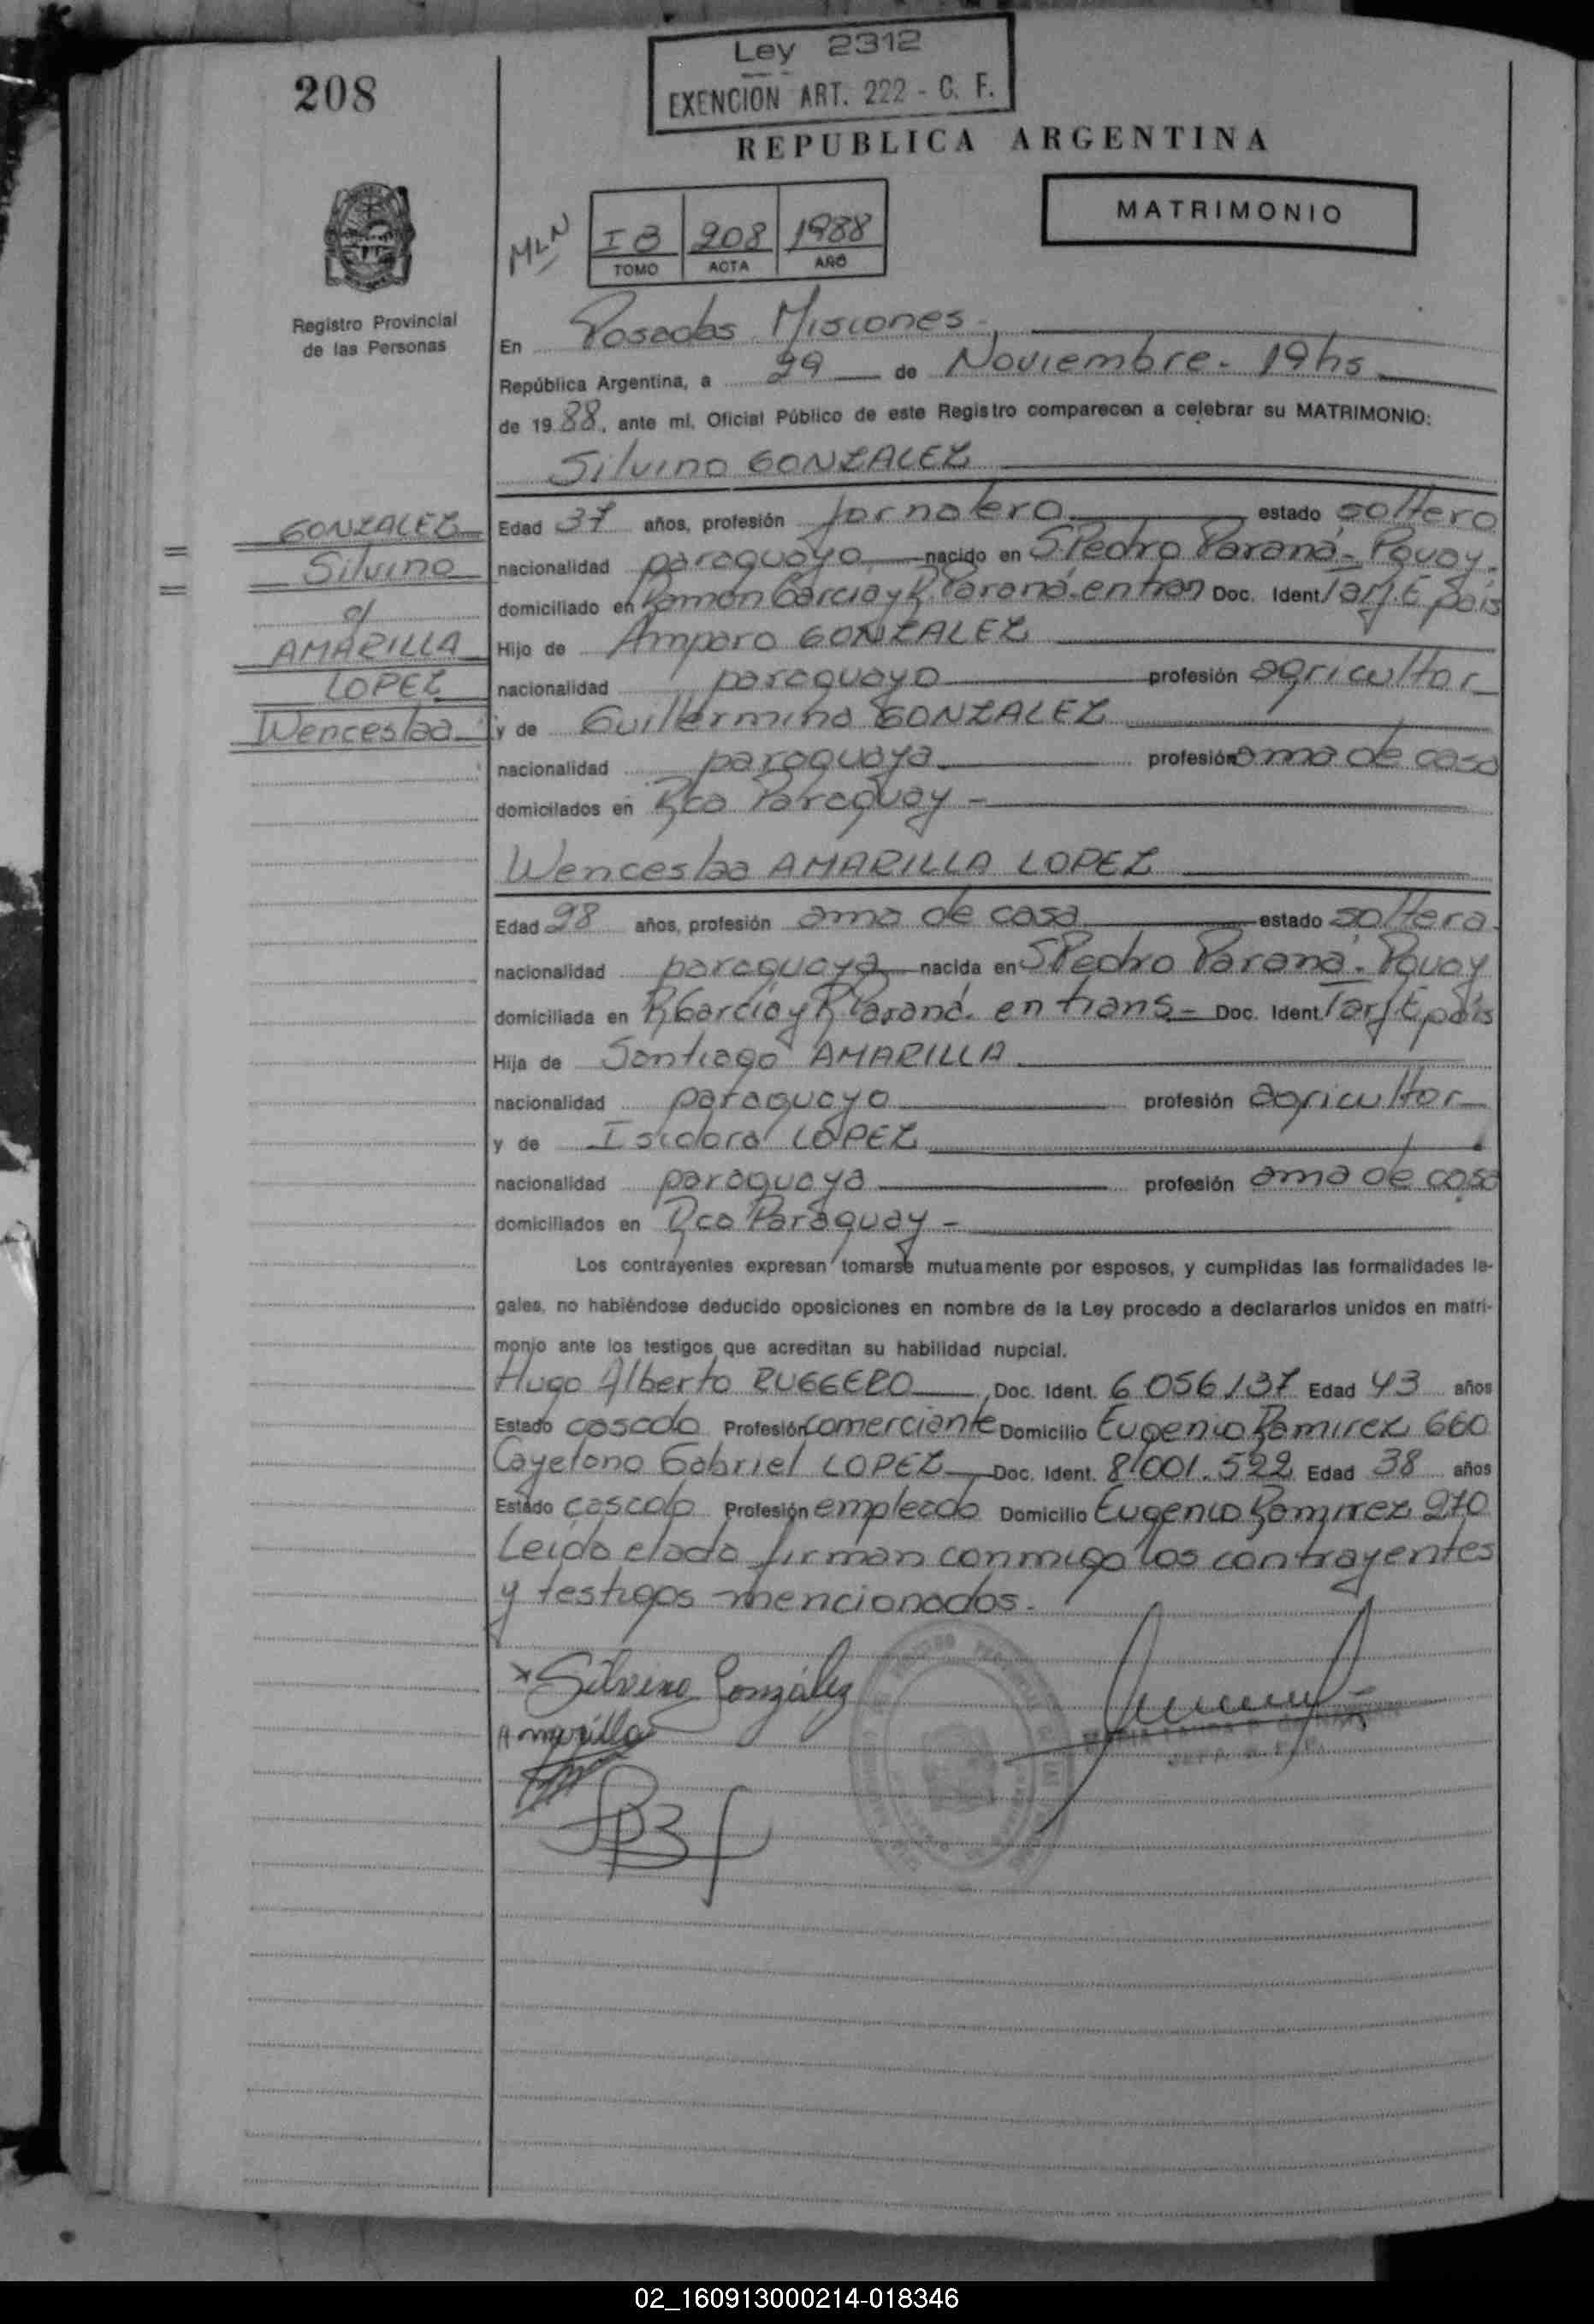 Ley 2312
EXENCION ART. 222 - C. F.
208
REPUBLICA ARGENTINA
MATRIMONIO
MLN
I B 208 1988
TOMO ACTA AÑO
Registro Provincial
de las Personas
En Posadas Misiones
República Argentina, a 29 de Noviembre - 19 hs
de 1988, ante mi, Oficial Público de este Registro comparecen a celebrar su MATRIMONIO:
Silvino GONZALEZ
GONZALEZ
Silvino
c/
AMARILLA
LOPEZ
Wenceslaa
Edad 37 años, profesión jornalero estado soltero
nacionalidad paraguayo nacido en S.Pedro Paraná - Pguay.
domiciliado en Ramón García y R. Paraná. en tran Doc. Ident. Tarj. E. país
Hijo de Amparo GONZALEZ
nacionalidad paraguayo profesión agricultor
y de Guillermina GONZALEZ
nacionalidad paraguaya profesión ama de casa
domicilados en Rca Paraguay -
Wenceslaa AMARILLA LOPEZ
Edad 28 años, profesión ama de casa estado soltera.
nacionalidad paraguaya nacida en S Pedro Paraná - Pguay
domiciliada en R. García y R. Paraná. en trans - Doc. Ident. Tarj. E. país
Hija de Santiago AMARILLA
nacionalidad paraguayo profesión agricultor
y de Isidora LOPEZ
nacionalidad paraguaya profesión ama de casa
domiciliados en Rca Paraguay -
Los contrayentes expresan tomarse mutuamente por esposos, y cumplidas las formalidades le-
gales, no habiéndose deducido oposiciones en nombre de la Ley procedo a declararlos unidos en matri-
monio ante los testigos que acreditan su habilidad nupcial.
Hugo Alberto RUGGERO Doc. Ident. 6056137 Edad 43 años
Estado casado Profesión comerciante Domicilio Eugenio Ramirez 660
Cayetano Gabriel LOPEZ Doc. Ident. 8.001.522 Edad 38 años
Estado casado Profesión empleado Domicilio Eugenio Ramirez 270
Leída el acta firman conmigo los contrayentes
y testigos mencionados.
x Silvino González
Amarilla
02_160913000214-018346